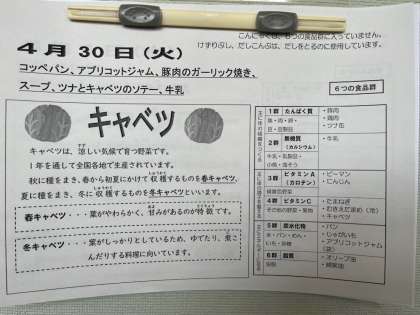 こんにゃくは、6つの食品群に入っていません。
けずりぶし、だしこんぶは、だしをとるのに使用しています。
4月30日(火)
コッペパン、アプリコットジャム、豚肉のガーリック焼き、
スープ、ツナとキャベツのソテー、牛乳
6つの食品群
キャベツ
キャベツは、涼しい気候で育つ野菜です。
1年を通して全国各地で生産されています。
秋に種をまき、春から初夏にかけて収穫するものを春キャベツ、
夏に種をまき、冬に収穫するものを冬キャベツといいます。
春キャベツ・・・葉がやわらかく、甘みがあるのが特徴です。
冬キャベツ・・・葉がしっかりとしているため、ゆでたり、煮こ
んだりする料理に向いています。
1群 たんぱく質
魚・肉・卵・
豆・豆製品
・豚肉
・鶏肉
・ツナ缶
2群 無機質
(カルシウム)
牛乳・乳製品・
小魚・海そう
・牛乳
3群 ビタミンA
(カロテン)
緑黄色野菜
・ピーマン
・にんじん
4群 ビタミンC
その他の野菜・果物
・たまねぎ
・キャベツ
5群 炭水化物
米・パン・めん・
いも・砂糖
・パン
・じゃがいも
・アプリコットジャム
(袋)
6群 脂質
油脂
・オリーブ油